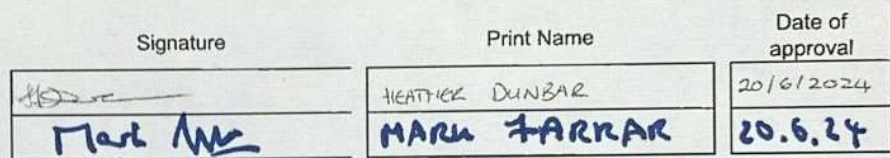 Signature Print Name Date of
approval
HEATHER DUNBAR 20/6/2024
Mark MARK FARRAR 20.6.24